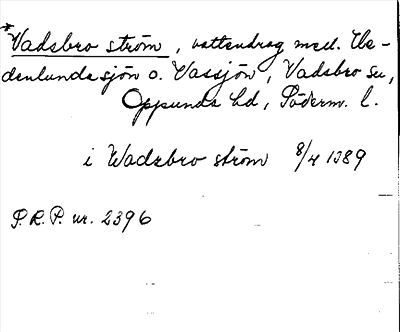 *Vadsbro ström, vattendrag mel. He-
denlundasjön o. Vassjön, Vadsbro sn,
Oppunda hd, Söderm. l.
i Wadzbro ström 8/4 1389
S.R.P. nr. 2396